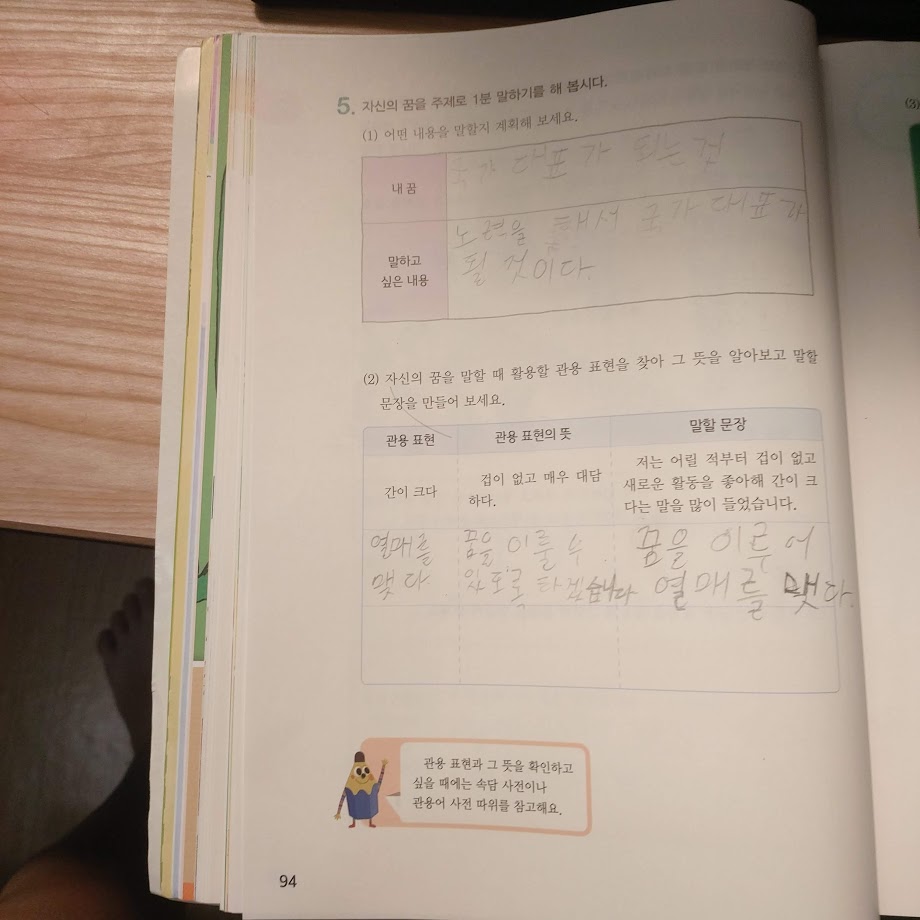 5. 자신의 꿈을 주제로 1분 말하기를 해 봅시다.
(1) 어떤 내용을 말할지 계획해 보세요.
내 꿈
국가 대표가 되는 것
말하고
싶은 내용
노력을 해서 국가 대표가
될 것이다.
(2) 자신의 꿈을 말할 때 활용할 관용 표현을 찾아 그 뜻을 알아보고 말할
문장을 만들어 보세요.
관용 표현
관용 표현의 뜻
말할 문장
간이 크다
겁이 없고 매우 대담
하다.
저는 어릴 적부터 겁이 없고
새로운 활동을 좋아해 간이 크
다는 말을 많이 들었습니다.
열매를
맺다
꿈을 이룰 수
있도록 하겠습니다
꿈을 이루어
열매를 맺다.
관용 표현과 그 뜻을 확인하고
싶을 때에는 속담 사전이나
관용어 사전 따위를 참고해요.
94
(3)